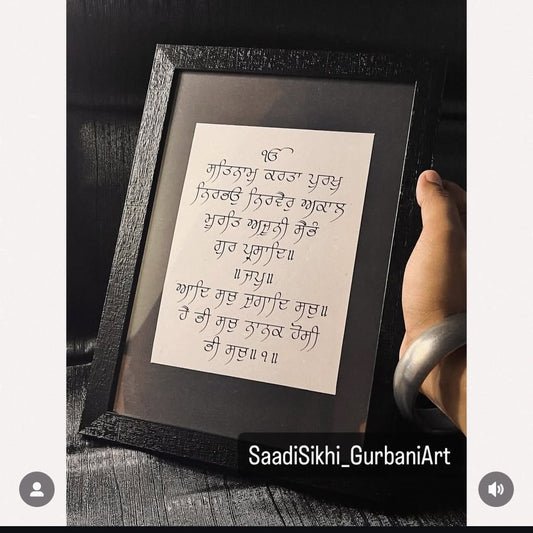 ੴ
ਸਤਿਨਾਮੁ ਕਰਤਾ ਪੁਰਖੁ
ਨਿਰਭਉ ਨਿਰਵੈਰੁ ਅਕਾਲ
ਮੂਰਤਿ ਅਜੂਨੀ ਸੈਭੰ
ਗੁਰ ਪ੍ਰਸਾਦਿ॥
॥ਜਪੁ॥
ਆਦਿ ਸਚੁ ਜੁਗਾਦਿ ਸਚੁ॥
ਹੈ ਭੀ ਸਚੁ ਨਾਨਕ ਹੋਸੀ
ਭੀ ਸਚੁ॥੧॥
SaadiSikhi_GurbaniArt